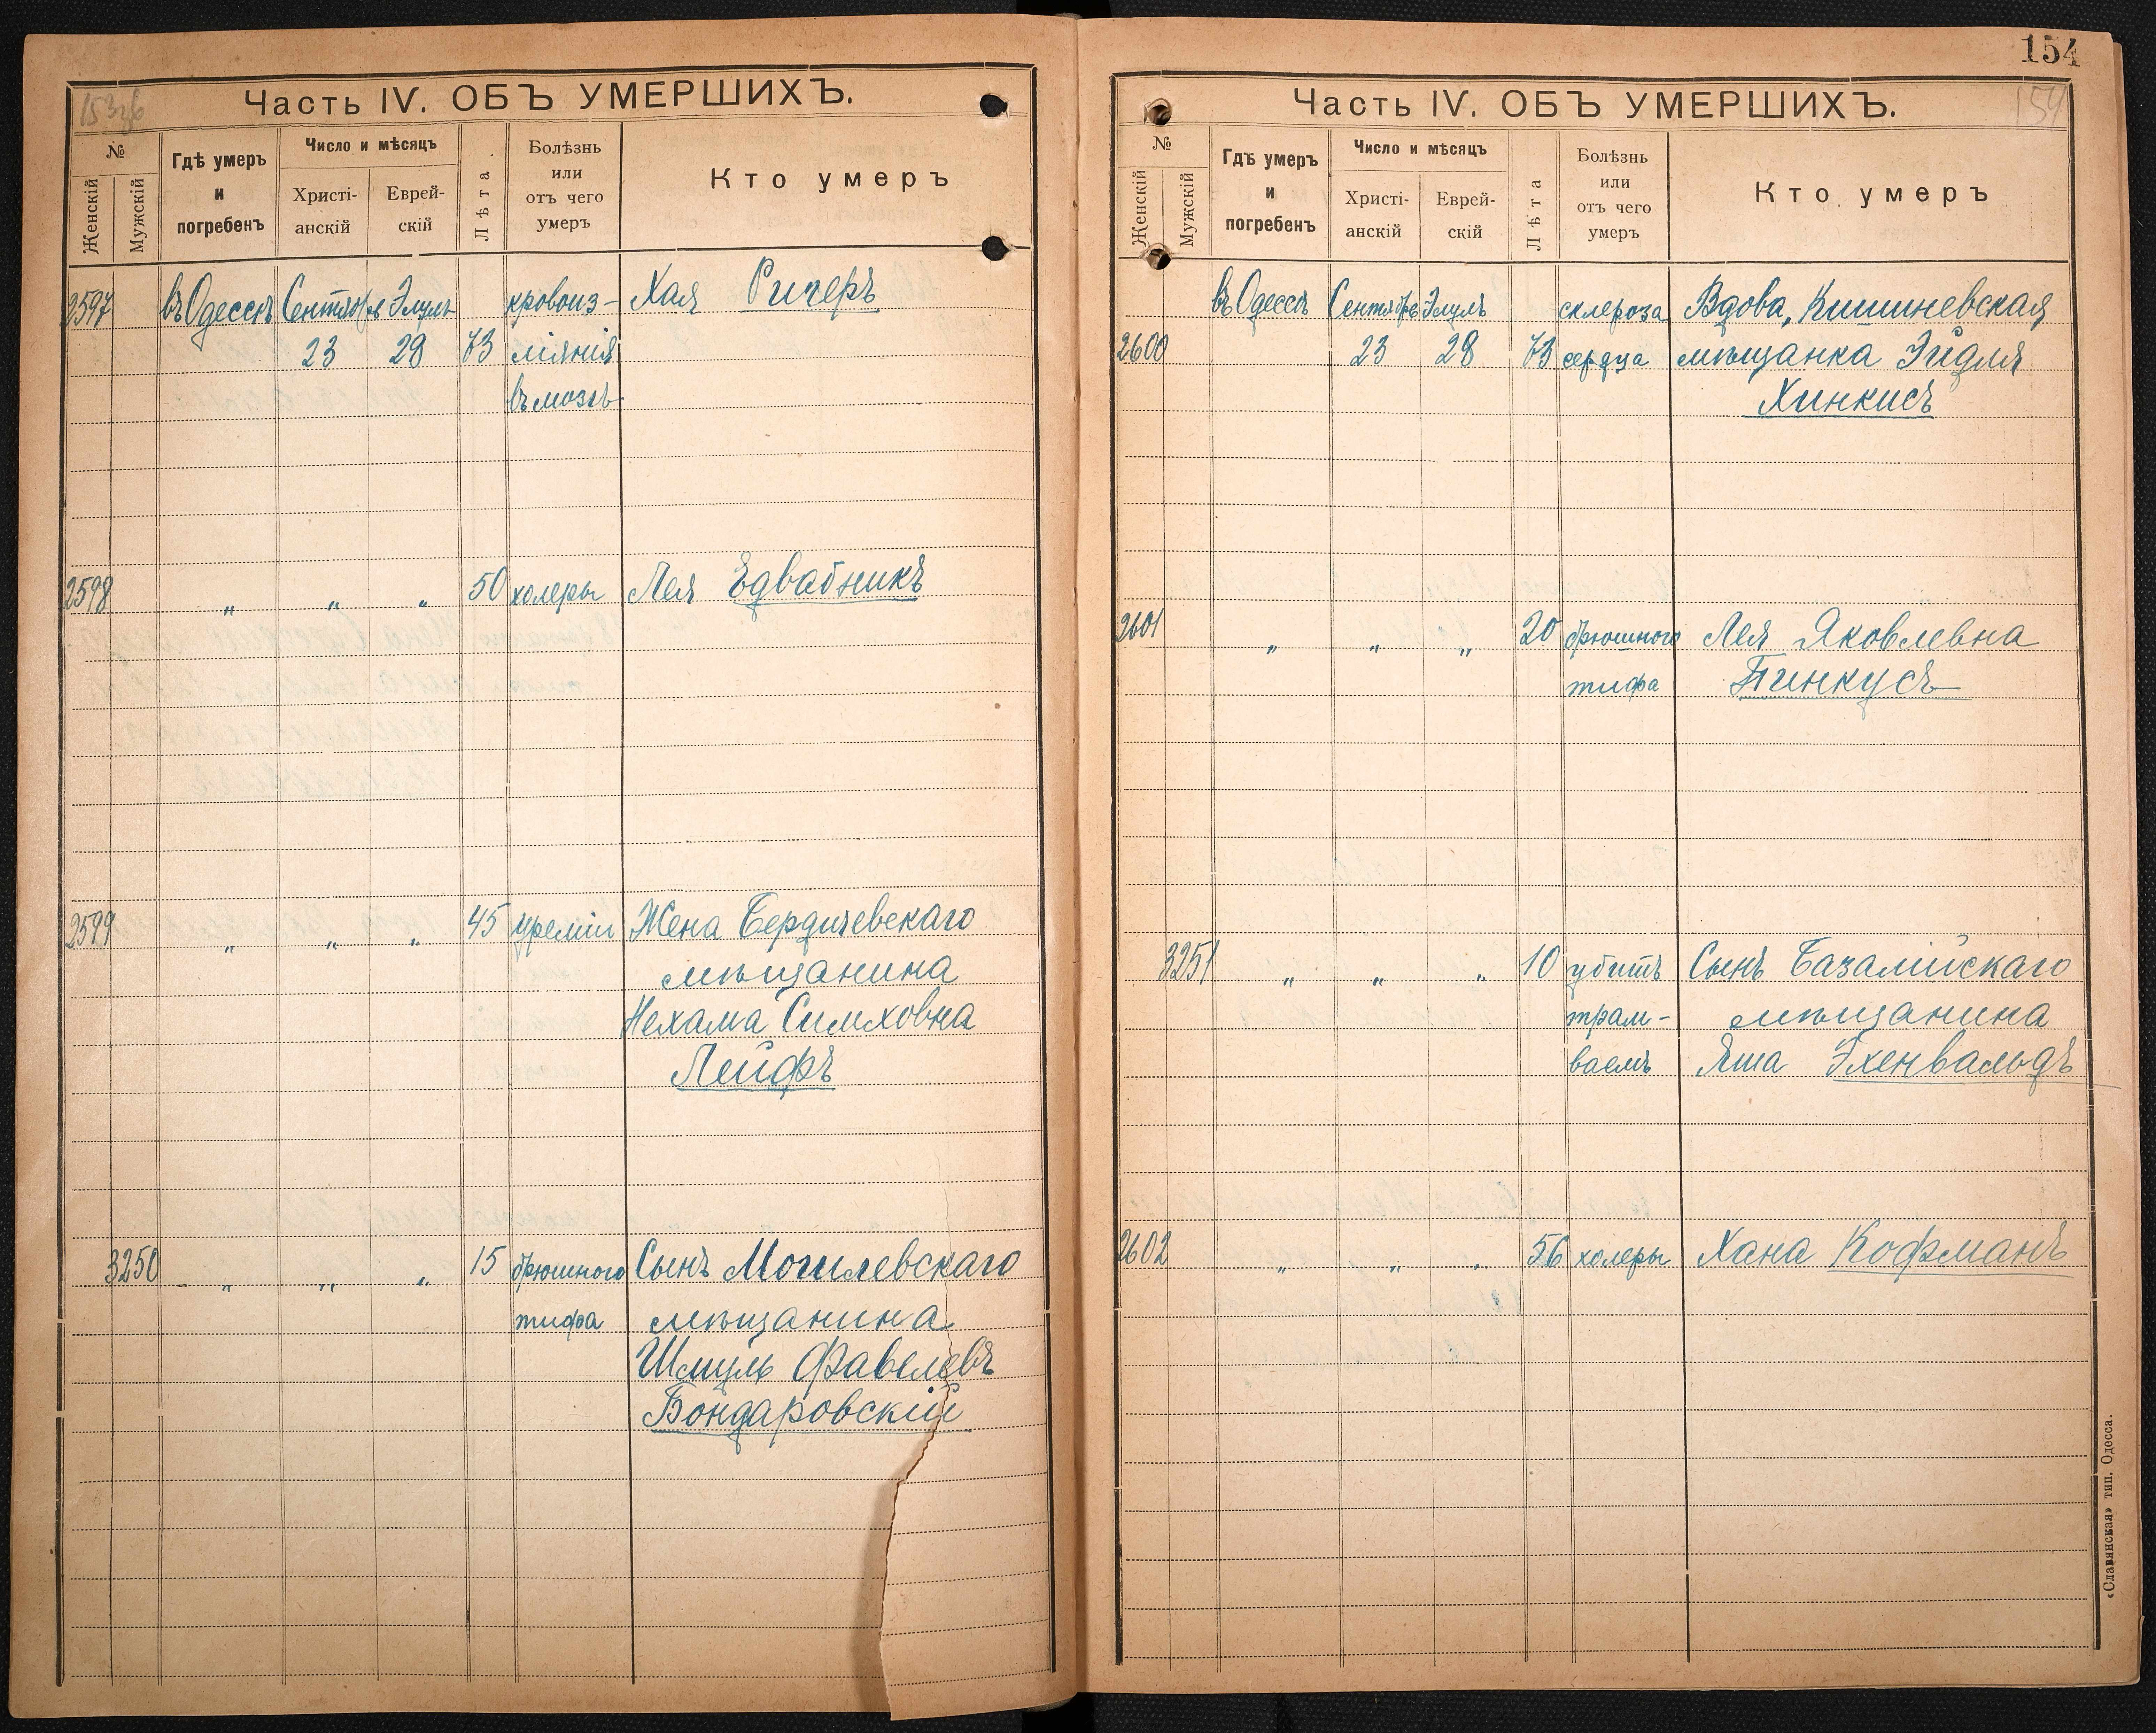 153об
Часть IV. ОБЪ УМЕРШИХЪ.
№
Женскій
Мужскій
Гдѣ умеръ
и
погребенъ
Число и мѣсяцъ
Христі-
анскій
Еврей-
скій
Лѣта
Болѣзнь
или
отъ чего
умеръ
Кто умеръ
2597 въ Одессѣ Сентября Элулъ кровоиз- Хая Ричеръ
23 29 73 ліянія
въ мозгъ
2598 " " " 50 холеры Лея Едвабникъ
2599 " " " 45 уреміи Жена Бердичевскаго
мѣщанина
Нехама Симховна
Лейфъ
3250 " " " 15 брюшного Сынъ Могилевскаго
тифа мѣщанина
Шмуль Фавелевъ
Бондаровскій
154
154
Часть IV. ОБЪ УМЕРШИХЪ.
№
Женскій
Мужскій
Гдѣ умеръ
и
погребенъ
Число и мѣсяцъ
Христі-
анскій
Еврей-
скій
Лѣта
Болѣзнь
или
отъ чего
умеръ
Кто умеръ
въ Одессѣ Сентябрь Элулъ склероза Вдова, Кишиневская
2600 23 29 73 сердца мѣщанка Эйдля
Хинкисъ
2601 " " " 20 брюшного Лея Яковлевна
тифа Пинкусъ
3251 " " " 10 убитъ Сынъ Базалійскаго
трам- мѣщанина
ваемъ Яша Эхенвальдъ
2602 " " " 56 холеры Хана Кофманъ
«Славянская» тип. Одесса.